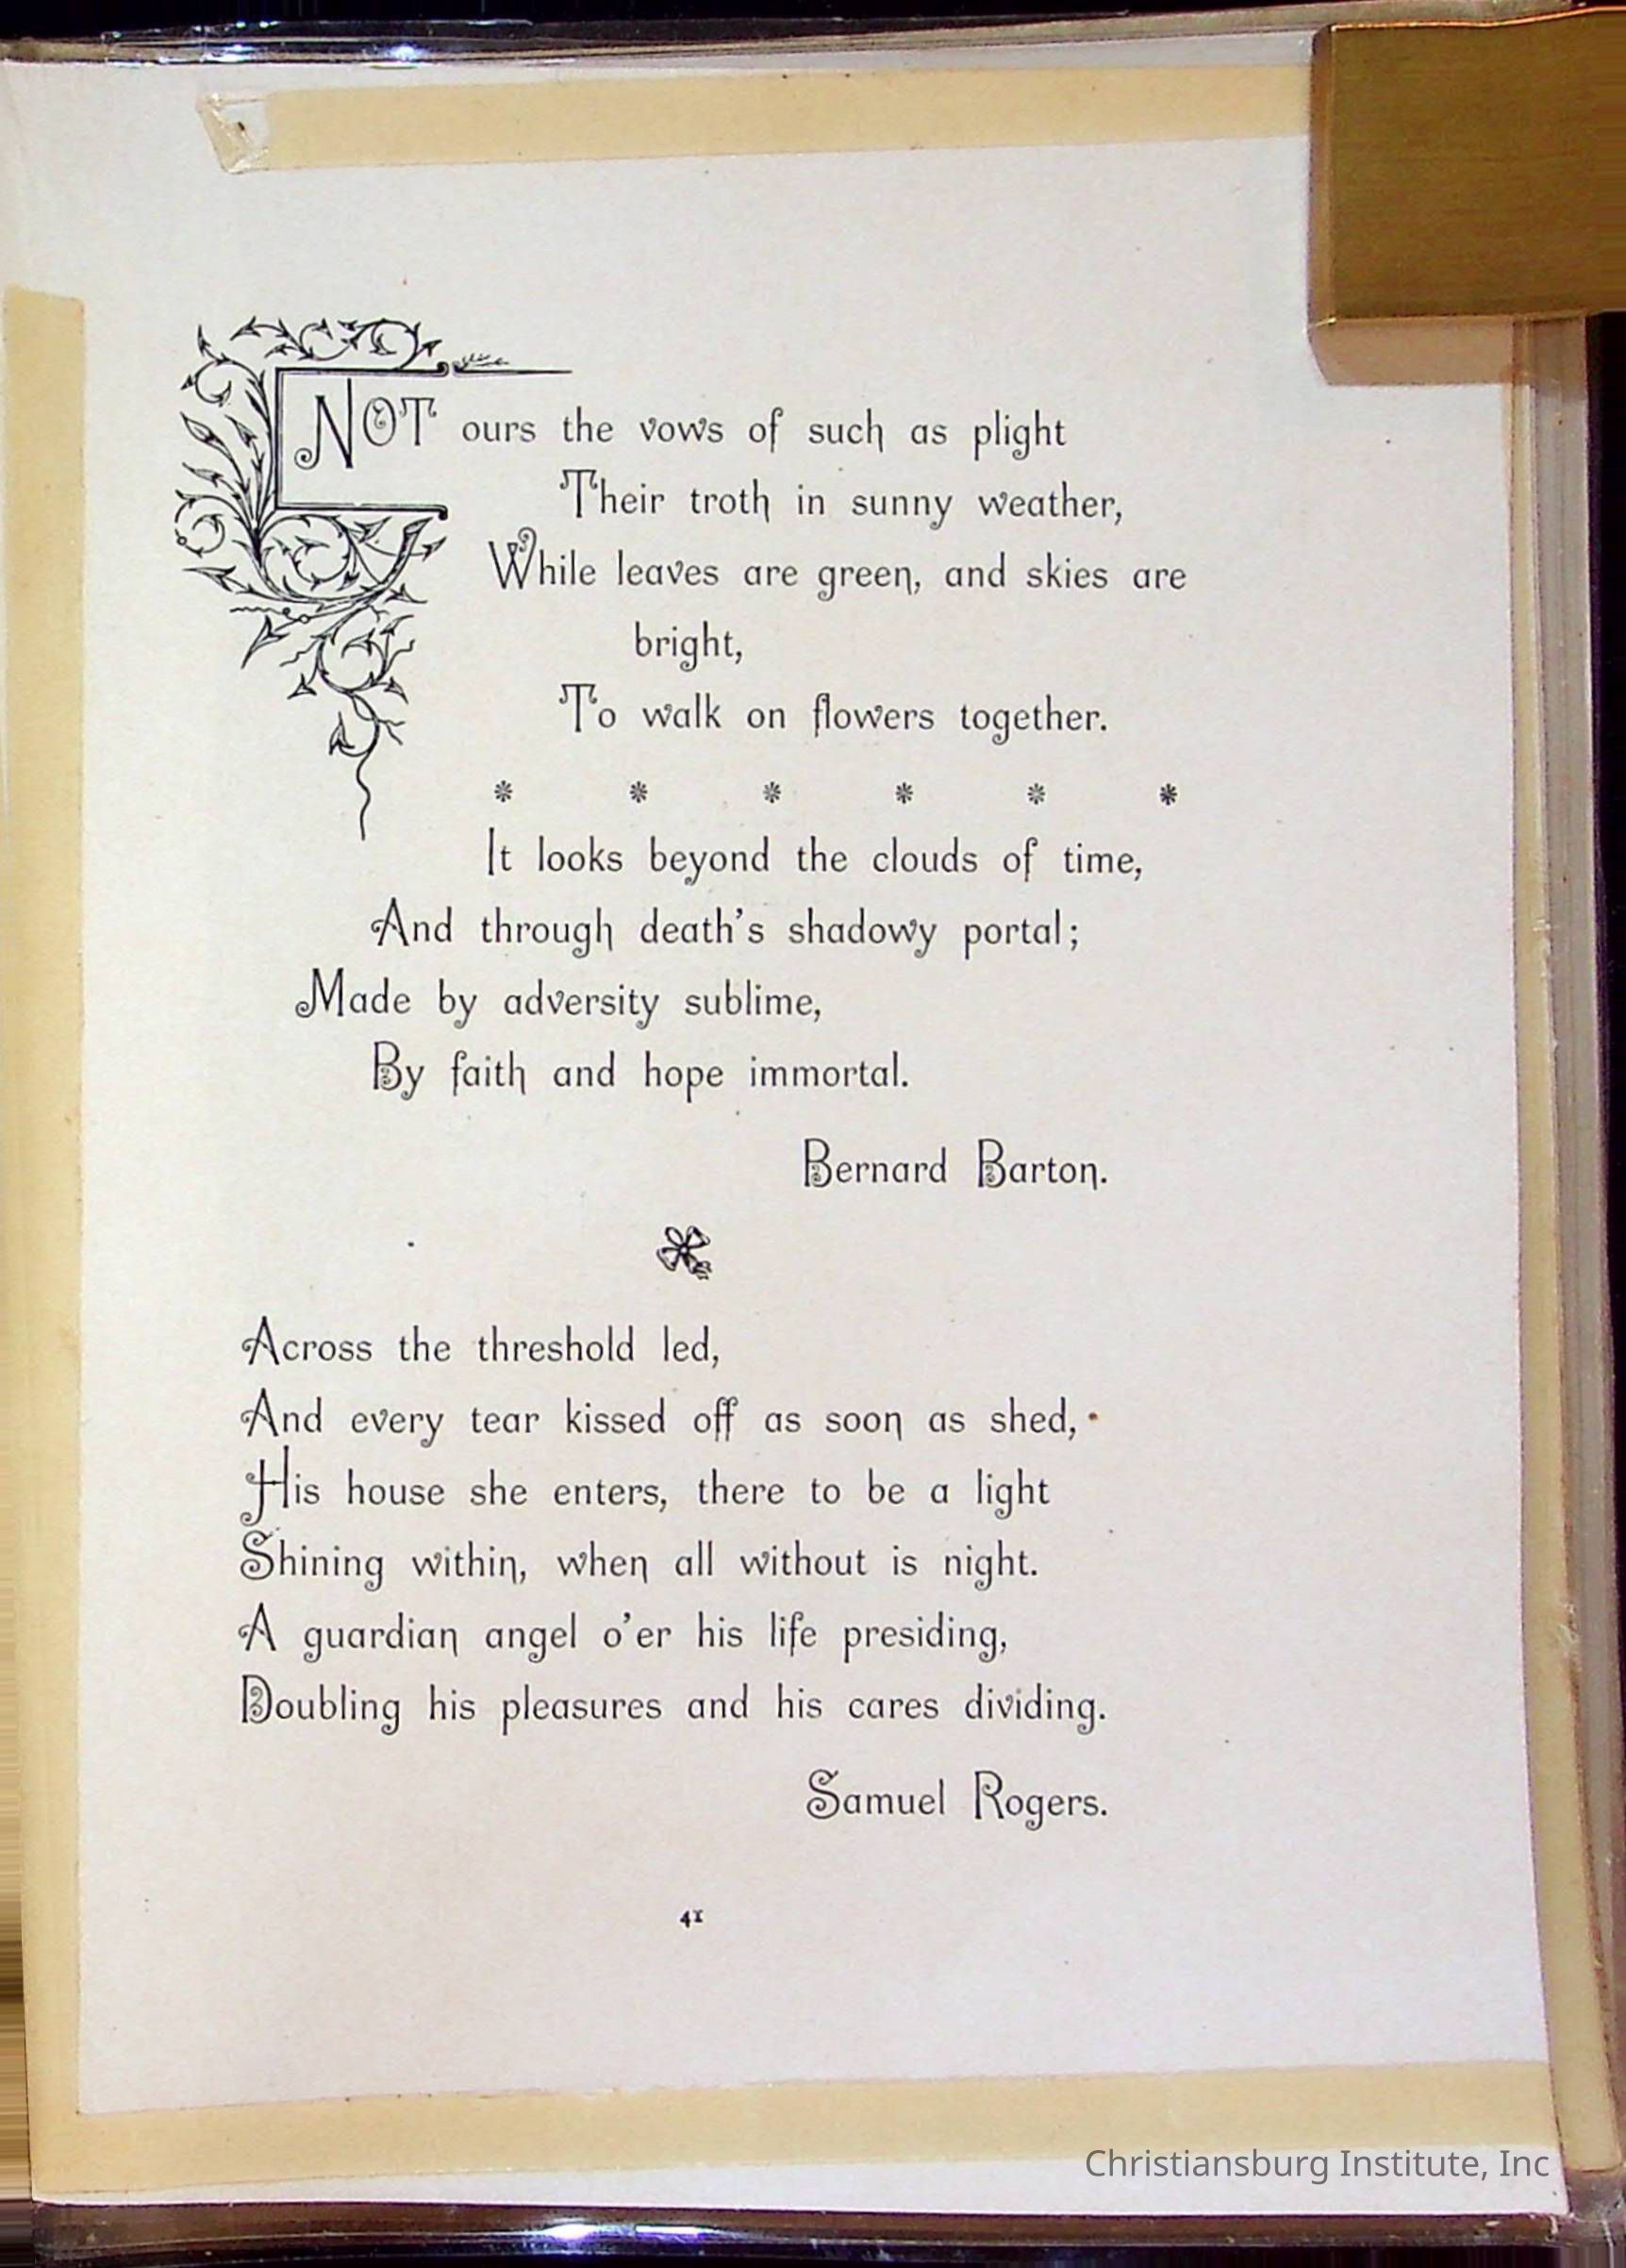 NOT ours the vows of such as plight
Their troth in sunny weather,
While leaves are green, and skies are
bright,
To walk on flowers together.
* * * * * *
It looks beyond the clouds of time,
And through death's shadowy portal;
Made by adversity sublime,
By faith and hope immortal.
Bernard Barton.
Across the threshold led,
And every tear kissed off as soon as shed,
His house she enters, there to be a light
Shining within, when all without is night.
A guardian angel o'er his life presiding,
Doubling his pleasures and his cares dividing.
Samuel Rogers.
41
Christiansburg Institute, Inc